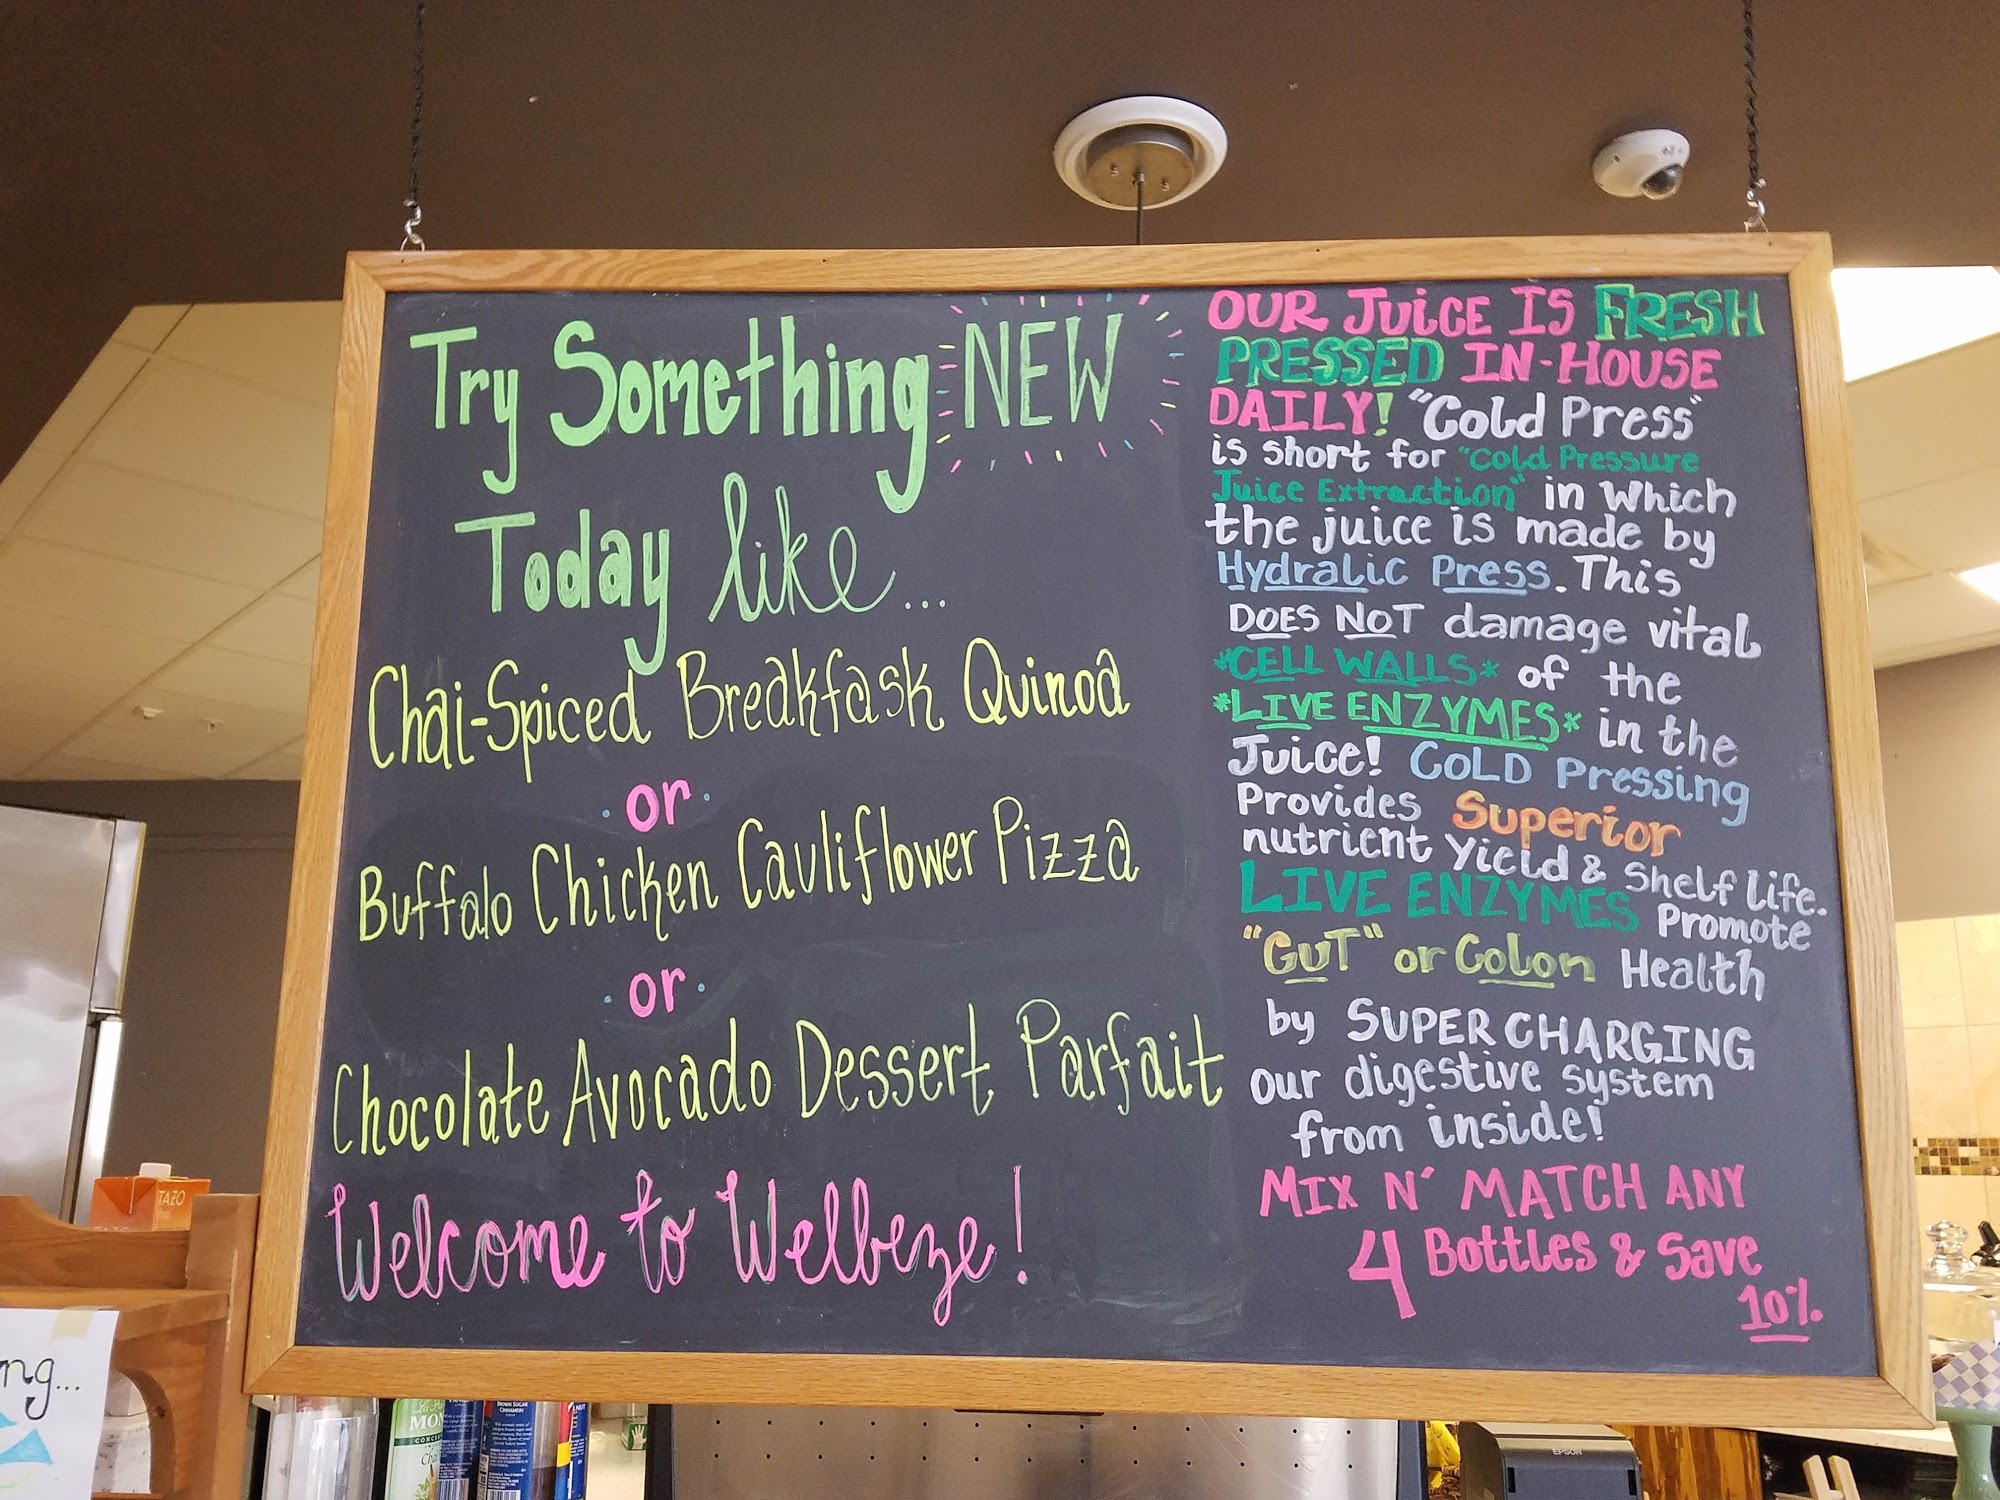 Try Something NEW
Today like...
Chai-Spiced Breakfask Quinoa
or
Buffalo Chicken Cauliflower Pizza
or
Chocolate Avocado Dessert Parfait
Welcome to Welbeze!
OUR JUICE IS FRESH
PRESSED IN-HOUSE
DAILY! "Cold Press"
is short for "Cold Pressure
Juice Extraction" in which
the juice is made by
Hydralic Press. This
DOES NOT damage vital
*CELL WALLS* of the
*LIVE ENZYMES* in the
Juice! COLD Pressing
Provides Superior
nutrient Yield & Shelf life.
LIVE ENZYMES Promote
"GUT" or Colon Health
by SUPER CHARGING
our digestive system
from inside!
MIX N' MATCH ANY
4 Bottles & Save
10%
TAZO
ng...
BROWN SUGAR
CINNAMON
EPSON